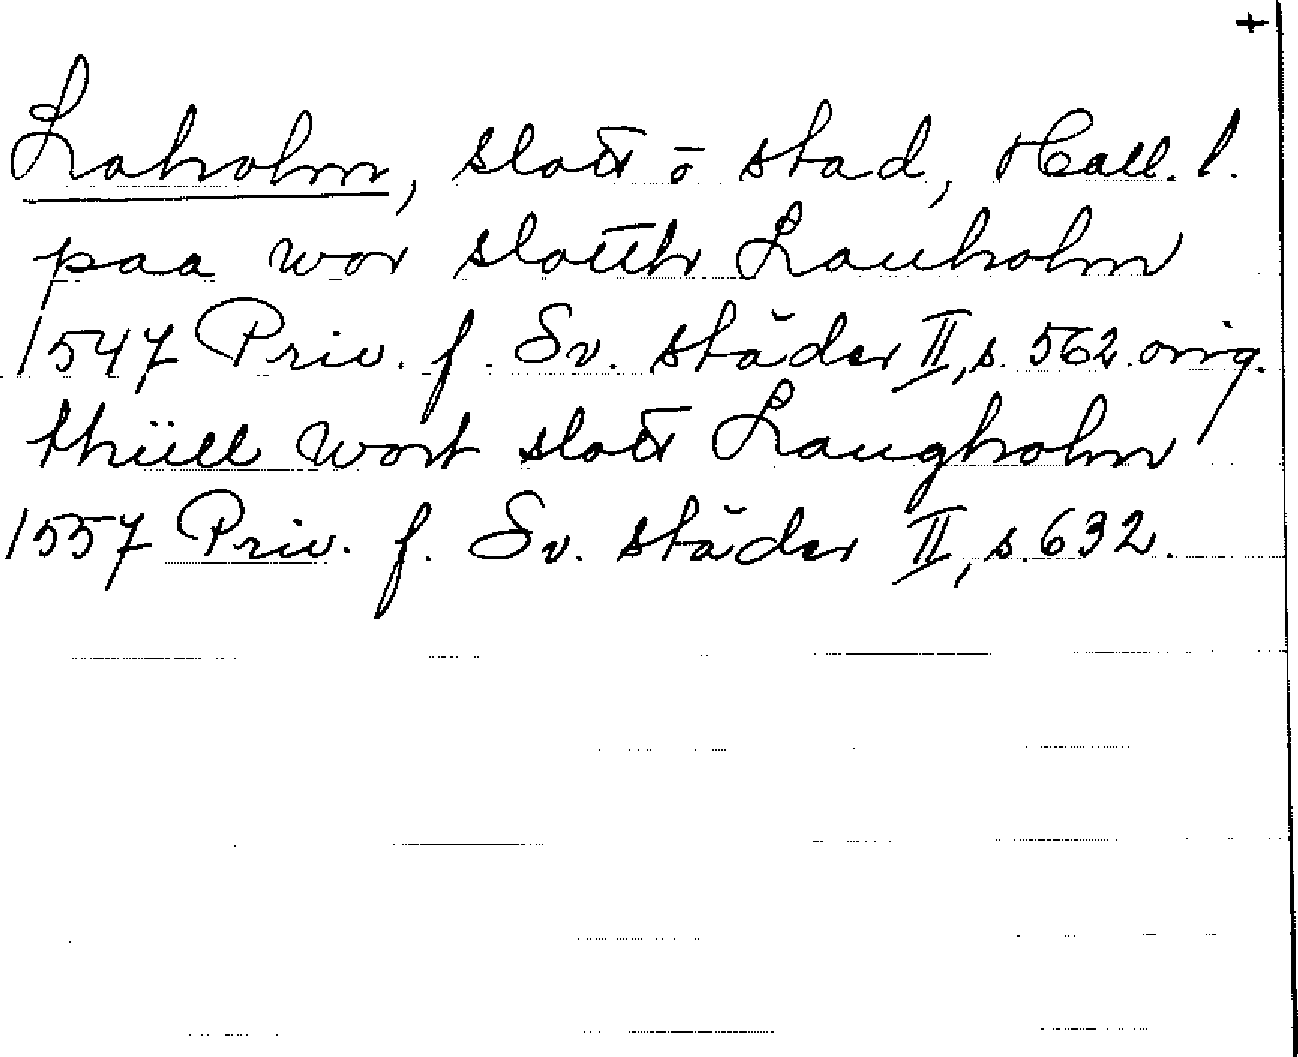 +
Laholm, slott ō stad, Hall. l.
paa wor slotth Lauholm
1547 Priv. f. Sv. städer II, s. 562. orig.
thüll wort slott Laugholm
1557 Priv. f. Sv. städer II, s. 632.